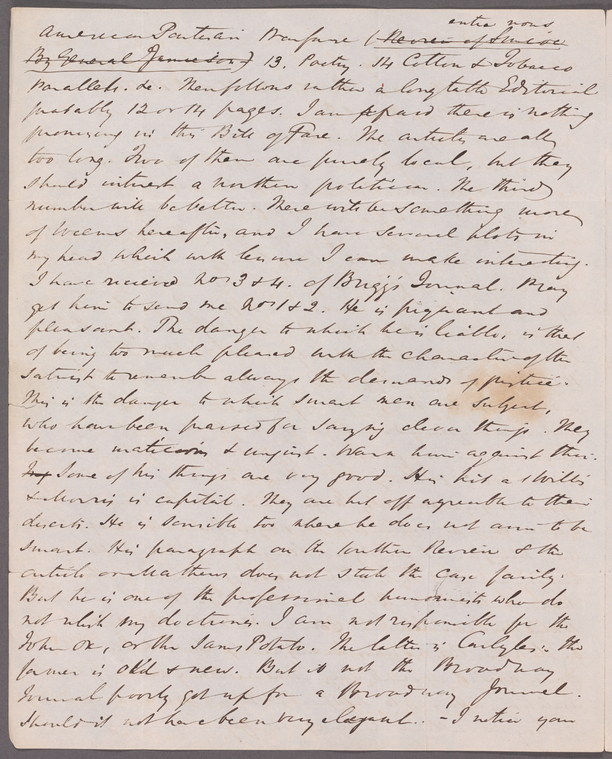 entre nous
American Partisan Warfare (Review of Simcoe
By General Jamieson) 13. Poetry. 14 Cotton & Tobacco
parallels. &c. Then follows rather a long table Editorial
probably 12 or 14 pages. I am afraid there is nothing
promising in this Bill of Fare. The articles are all
too long. Two of them are purely local, but they
should interest a northern politician. The third
number will be better. There will be something more
of Weems hereafter, and I have several plots in
my head which with leisure I can make interesting.
I have received Nos 3 & 4. of Briggs Journal. Pray
get him to send me Nos 1 & 2. He is piquant and
pleasant. The danger to which he is liable, is that
of being too much pleased with the character of the
satirist to remember always the demands of justice.
This is the danger to which smart men are subject,
who have been praised for saying clever things. They
become malicious & unjust. Warn him against this.
Some of his things are very good. His hit at Willis
& Morris is capital. They are hit off agreeably to their
deserts. He is sensible too where he does not aim to be
smart. His paragraph on the Southern Review & the
article on Mathews does not state the case fairly.
But he is one of the professional humorists who do
not relish my doctrines. I am not responsible for the
John Ox, or the Sans Potato. The latter is Carlyle's. The
former is old & new. But is not the Broadway
Journal poorly got up for a Broadway Journal.
Should it not have been very elegant. - I notice your